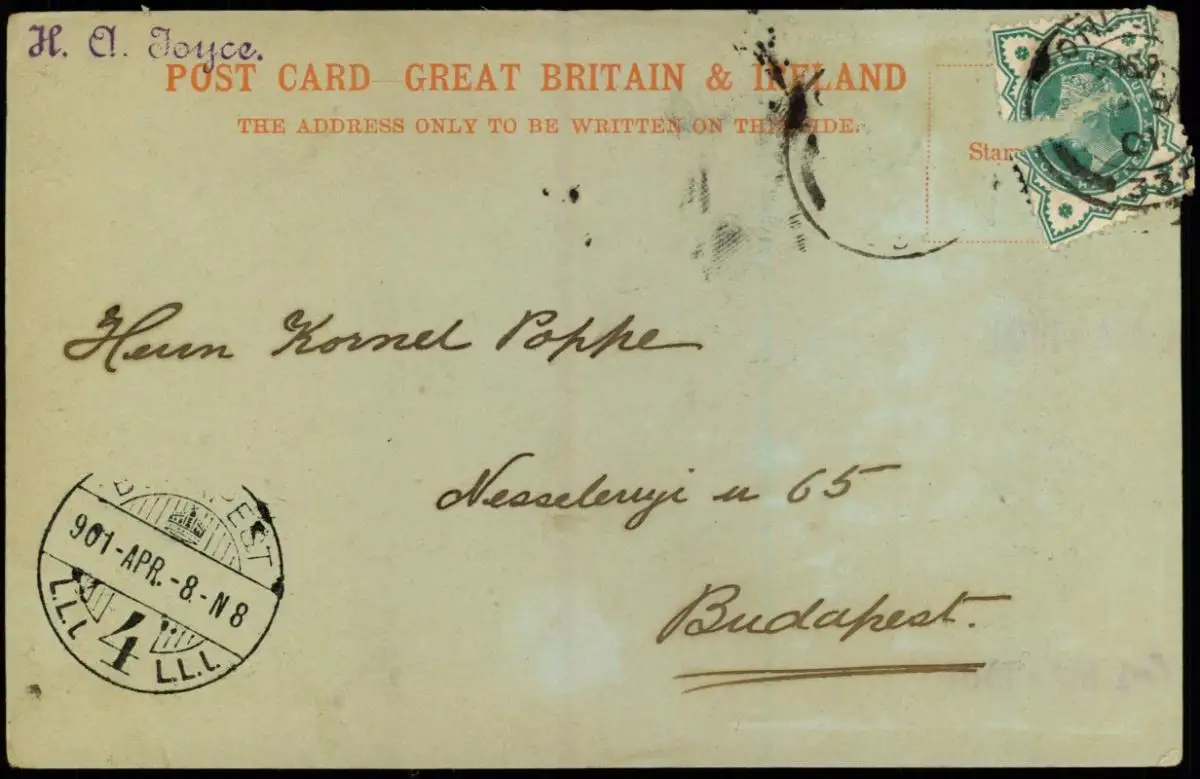 H. A. Joyce.
POST CARD – GREAT BRITAIN & IRELAND
THE ADDRESS ONLY TO BE WRITTEN ON THIS SIDE.
Herrn Kornel Poppe
Nesselenyi u 65
Budapest.
BUDAPEST
901-APR.-8.-N8
4
L.L.L. L.L.L.
01